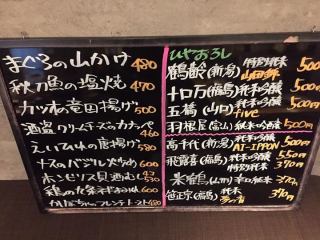 まぐろの山かけ 480
秋刀魚の塩焼 470
カツオの竜田揚げ 500
酒盗クリームチーズのカナッペ 460
えいひれの唐揚げ 580
ナスのバジル炒め 600
ホンビノス貝酒むし 530
鶏の 600
かぼちゃのフレンチトースト 480
ひやおろし
鶴齢(新潟) 特別純米 山田錦 500
十ロ万(福島) 純米吟醸 500円
五橋(山口) 純米吟醸 five 500円
羽根屋(富山) 純米吟醸 500円
高千代(新潟) 純米吟醸 AT-IPPON 550円
飛露喜(福島) 特別純米 390円
米鶴(山形) 純米 370円
笹正宗(福島) 純米 390円